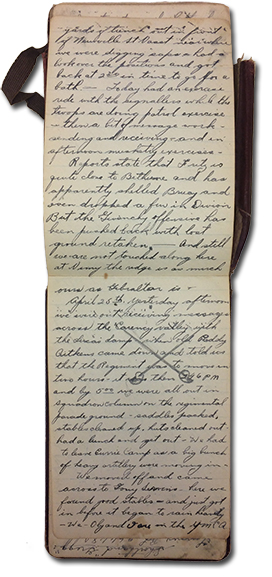 yards of trench out in front
of Neuville St Vaast
were digging
look over the positions and got
back at 2 in time to go for a
bath — Today had an exercise
ride with the signallers while the
troops are doing patrol exercise
— then a bit of message work -
sending and receiving - and in
afternoon musketry exercises -
Reports state that Fritz is
quite close to Bethune and has
apparently shelled Bruay and
even dropped a few in Divion
But the Givenchy offensive has
been pushed back with lost
ground retaken. — And still
we are not touched along here
at Vimy the ridge is as much
ours as Gibraltar is -
April 25th Yesterday afternoon
we were receiving messages
across the Carency valley with
the lamp when old Paddy
Aitkens came down and told us
that the Regiment was to move in
two hours - it was then 3:45 PM
and by 5 we were all out in
squadron column on the regimental
parade ground - saddles packed,
stables cleaned up, huts cleaned out
had a lunch and got out - We had
to leave Currie Camp as a big bunch
of heavy artillery were moving in -
We moved off and came
across to Here we
found good stables - and just got
in before it began to rain
- We and are in the YMCA